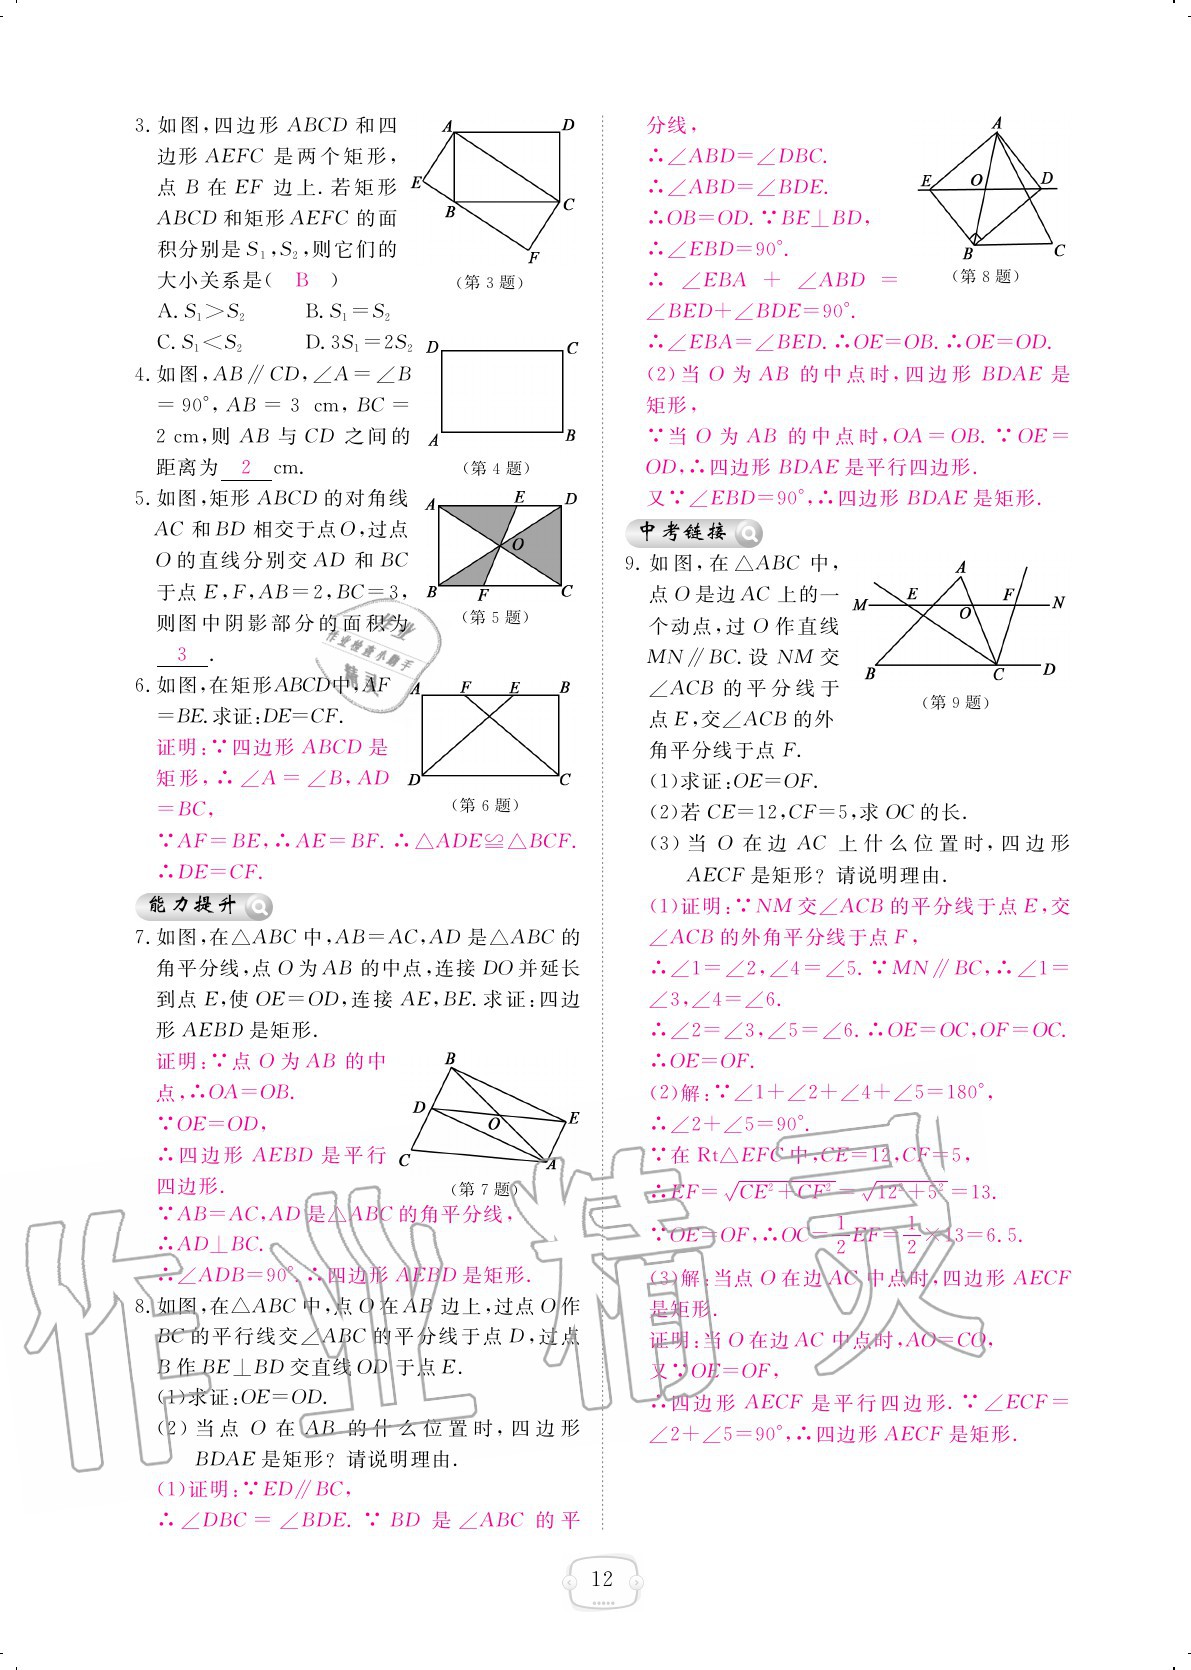 3. 如图,四边形 ABCD 和四
边形 AEFC 是两个矩形,
点 B 在 EF 边上.若矩形
ABCD 和矩形 AEFC 的面
积分别是 S₁,S₂,则它们的
大小关系是( B )
A. S₁>S₂ B. S₁=S₂
C. S₁<S₂ D. 3S₁=2S₂
A D E B C F
(第 3 题)
4. 如图,AB∥CD,∠A=∠B
=90°, AB = 3 cm, BC =
2 cm,则 AB 与 CD 之间的
距离为 2 cm.
D C A B
(第 4 题)
5. 如图,矩形 ABCD 的对角线
AC 和 BD 相交于点 O,过点
O 的直线分别交 AD 和 BC
于点 E,F,AB=2,BC=3,
则图中阴影部分的面积为
3 .
A E D O B F C
(第 5 题)
6. 如图,在矩形ABCD中,AF
=BE.求证:DE=CF.
证明:∵四边形 ABCD 是
矩形,∴∠A=∠B,AD
=BC,
∵AF=BE,∴AE=BF.∴△ADE≌△BCF.
∴DE=CF.
A F E B D C
(第 6 题)
能力提升
7. 如图,在△ABC 中,AB=AC,AD 是△ABC 的
角平分线,点 O 为 AB 的中点,连接 DO 并延长
到点 E,使 OE=OD,连接 AE,BE.求证:四边
形 AEBD 是矩形.
证明:∵点 O 为 AB 的中
点,∴OA=OB.
∵OE=OD,
∴四边形 AEBD 是平行
四边形.
B D O E C A
(第 7 题)
∵AB=AC,AD 是△ABC 的角平分线,
∴AD⊥BC.
∴∠ADB=90°.∴四边形 AEBD 是矩形.
8. 如图,在△ABC 中,点 O 在 AB 边上,过点 O 作
BC 的平行线交∠ABC 的平分线于点 D,过点
B 作 BE⊥BD 交直线 OD 于点 E.
(1)求证:OE=OD.
(2)当点 O 在 AB 的什么位置时,四边形
BDAE 是矩形? 请说明理由.
(1)证明:∵ED∥BC,
∴∠DBC=∠BDE.∵BD 是∠ABC 的平
分线,
∴∠ABD=∠DBC.
∴∠ABD=∠BDE.
∴OB=OD.∵BE⊥BD,
∴∠EBD=90°.
∴ ∠EBA + ∠ABD =
∠BED+∠BDE=90°.
∴∠EBA=∠BED.∴OE=OB.∴OE=OD.
A E O D B C
(第 8 题)
(2)当 O 为 AB 的中点时,四边形 BDAE 是
矩形,
∵当 O 为 AB 的中点时,OA=OB.∵OE=
OD,∴四边形 BDAE 是平行四边形.
又∵∠EBD=90°,∴四边形 BDAE 是矩形.
中考链接
9. 如图,在△ABC 中,
点 O 是边 AC 上的一
个动点,过 O 作直线
MN∥BC.设 NM 交
∠ACB 的平分线于
点 E,交∠ACB 的外
角平分线于点 F.
A M E O F N B C D
(第 9 题)
(1)求证:OE=OF.
(2)若 CE=12,CF=5,求 OC 的长.
(3)当 O 在边 AC 上什么位置时,四边形
AECF 是矩形? 请说明理由.
(1)证明:∵NM 交∠ACB 的平分线于点 E,交
∠ACB 的外角平分线于点 F,
∴∠1=∠2,∠4=∠5.∵MN∥BC,∴∠1=
∠3,∠4=∠6.
∴∠2=∠3,∠5=∠6.∴OE=OC,OF=OC.
∴OE=OF.
(2)解:∵∠1+∠2+∠4+∠5=180°,
∴∠2+∠5=90°.
∵在 Rt△EFC 中,CE=12,CF=5,
∴EF=√(CE²+CF²)=√(12²+5²)=13.
∵OE=OF,∴OC=1/2 EF=1/2×13=6.5.
(3)解:当点 O 在边 AC 中点时,四边形 AECF
是矩形.
证明:当 O 在边 AC 中点时,AO=CO,
又∵OE=OF,
∴四边形 AECF 是平行四边形.∵∠ECF=
∠2+∠5=90°,∴四边形 AECF 是矩形.
12
作业精灵
作业检查小助手